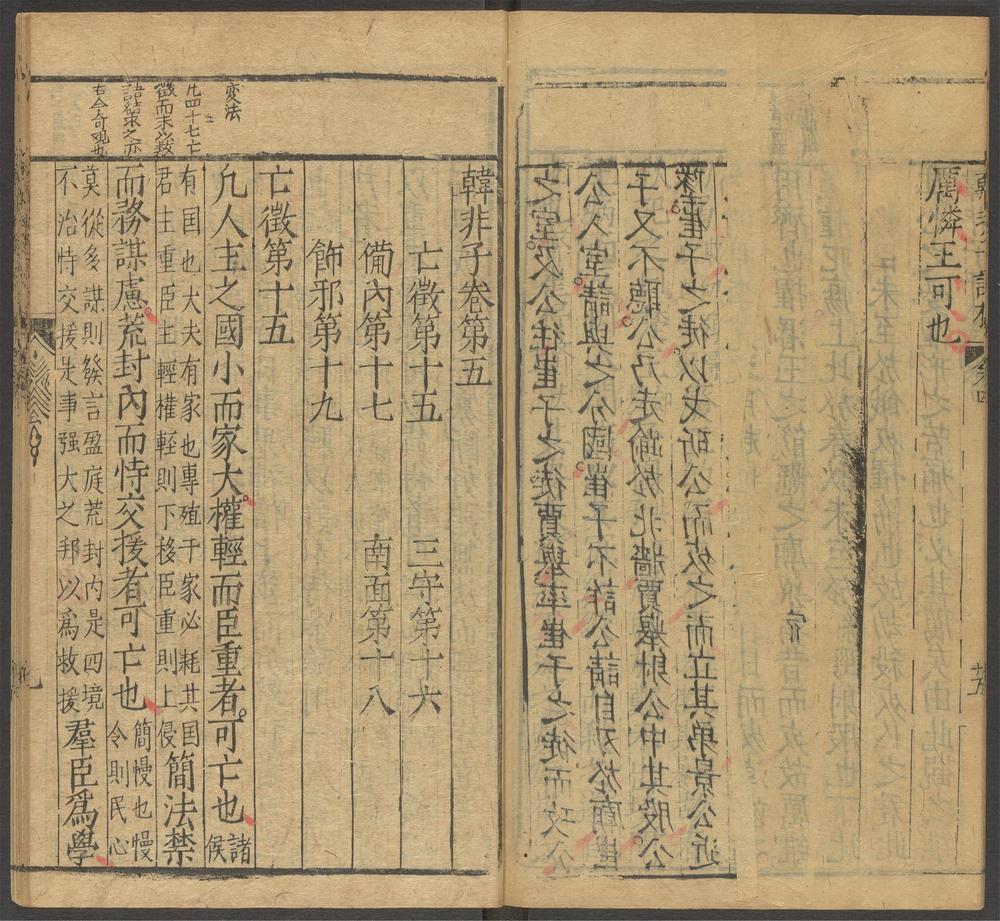 厲憐王可也
之室不久公往崔子之徒賈舉率崔子之徒而攻公
公入室請與之分國崔子不許公請自刃於廟崔
子又不聽公乃走踰於北墻賈舉射公中其股公
崔子之徒以戈斫公而死之而立其弟景公近
韓非子卷第五
亡徵第十五　三守第十六
備內第十七　南面第十八
飾邪第十九
亡徵第十五
凡人主之國小而家大權輕而臣重者可亡也諸侯
有国也大夫有家也專殖于家必耗其国
君主重臣主輕權輕則下移臣重則上侵
簡法禁
而務謀慮荒封內而恃交援者可亡也
簡慢也慢
令則民心
莫從多謀則發言盈庭荒封内是四境
不治恃交援是事强大之邦以爲救援
羣臣爲學
変法
凡四十七亡
徵而末以救
語結策之亦
古今奇觀也